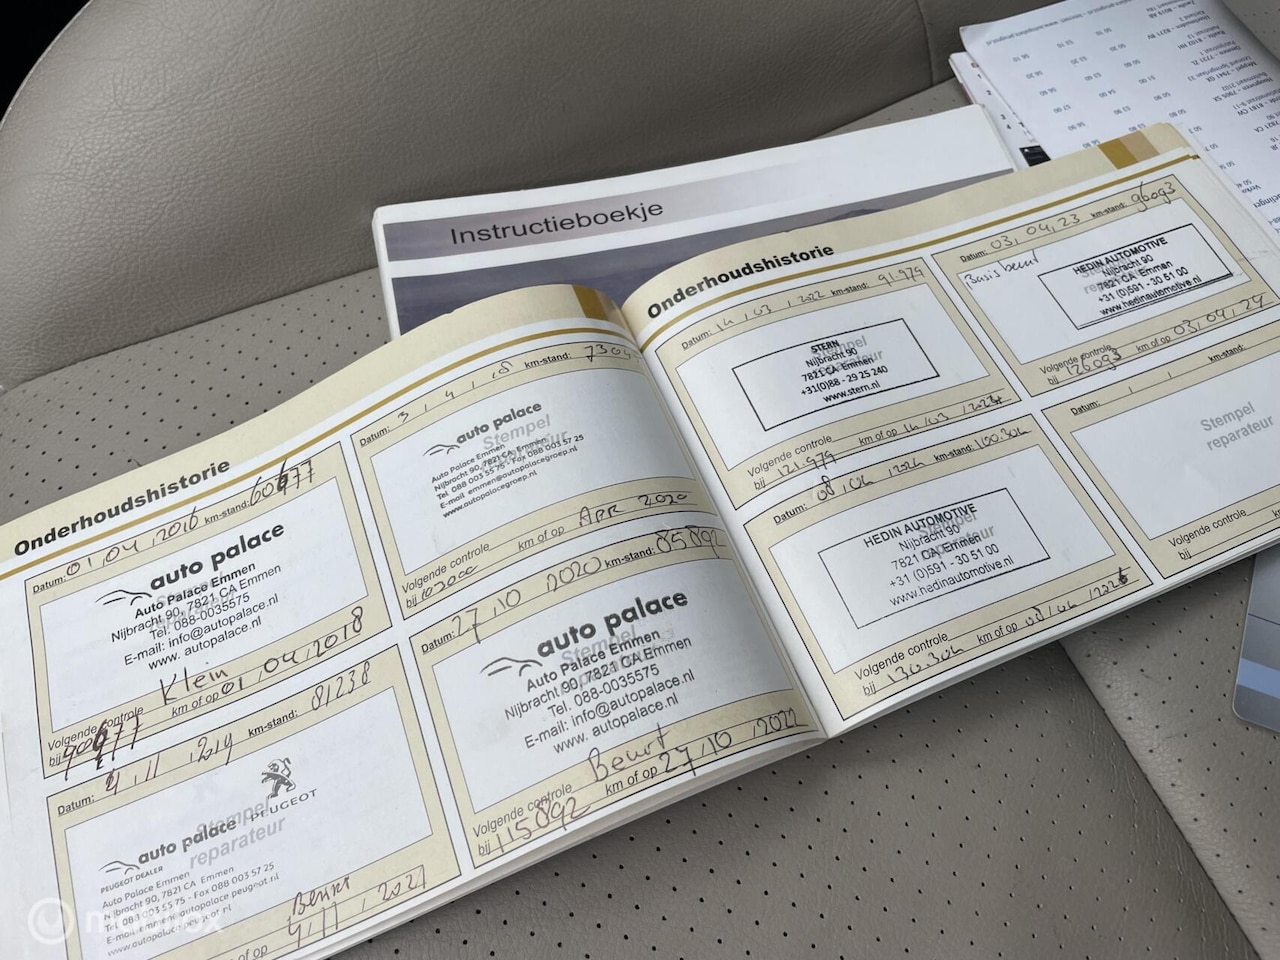 Instructieboekje
Onderhoudshistorie
Datum: 01, 04, 2016 km-stand: 60677
auto palace
Auto Palace Emmen
Nijbracht 90, 7821 CA Emmen
Tel. 088-0035575
E-mail: info@autopalace.nl
www. autopalace.nl
Klein
Volgende controle
bij 90677 km of op 01, 04, 2018
Datum: 3, 4, 18 km-stand:
auto palace
Stempel
reparateur
Auto Palace Emmen
Nijbracht 90, 7821 CA Emmen
Tel. 088 003 55 75 - Fax 088 003 57 25
E-mail emmen@autopalacegroep.nl
www.autopalacegroep.nl
Volgende controle
bij km of op Apr 2020
Datum: 4, 11, 219 km-stand: 81238
PEUGEOT
Stempel
reparateur
auto palace
PEUGEOT DEALER
Auto Palace Emmen
Nijbracht 90, 7821 CA Emmen
Tel. 088 003 55 75 - Fax 088 003 57 25
E-mail emmen@autopalace.peugeot.nl
www.autopalace.peugeot.nl
Beurt
of op 4, 11, 2021
Datum: 27, 10 2020 km-stand: 85892
auto palace
Stempel
Auto Palace Emmen
Nijbracht 90, 7821 CA Emmen
Tel. 088-0035575
E-mail: info@autopalace.nl
www. autopalace.nl
Beurt
Volgende controle
bij 115892 km of op 27, 10, 2022
Onderhoudshistorie
Datum: 14, 03, 2022 km-stand: 91.979
STERN
Nijbracht 90
7821 CA Emmen
+31(0)88 - 29 25 240
www.stern.nl
Stempel
reparateur
Volgende controle
bij 121.979 km of op 14, 03, 2024
Datum: 03, 04, 23 km-stand: 96093
Basis beurt
HEDIN AUTOMOTIVE
Nijbracht 90
7821 CA Emmen
+31 (0)591 - 30 51 00
www.hedinautomotive.nl
Stempel
reparateur
Volgende controle
bij 126093 km of op 03, 04, 24
Datum: 08, 04, 2024 km-stand: 100.304
HEDIN AUTOMOTIVE
Nijbracht 90
7821 CA Emmen
+31 (0)591 - 30 51 00
www.hedinautomotive.nl
Stempel
reparateur
Volgende controle
bij 130.304 km of op 08, 04,
Datum: km-stand:
Stempel
reparateur
Volgende controle
bij